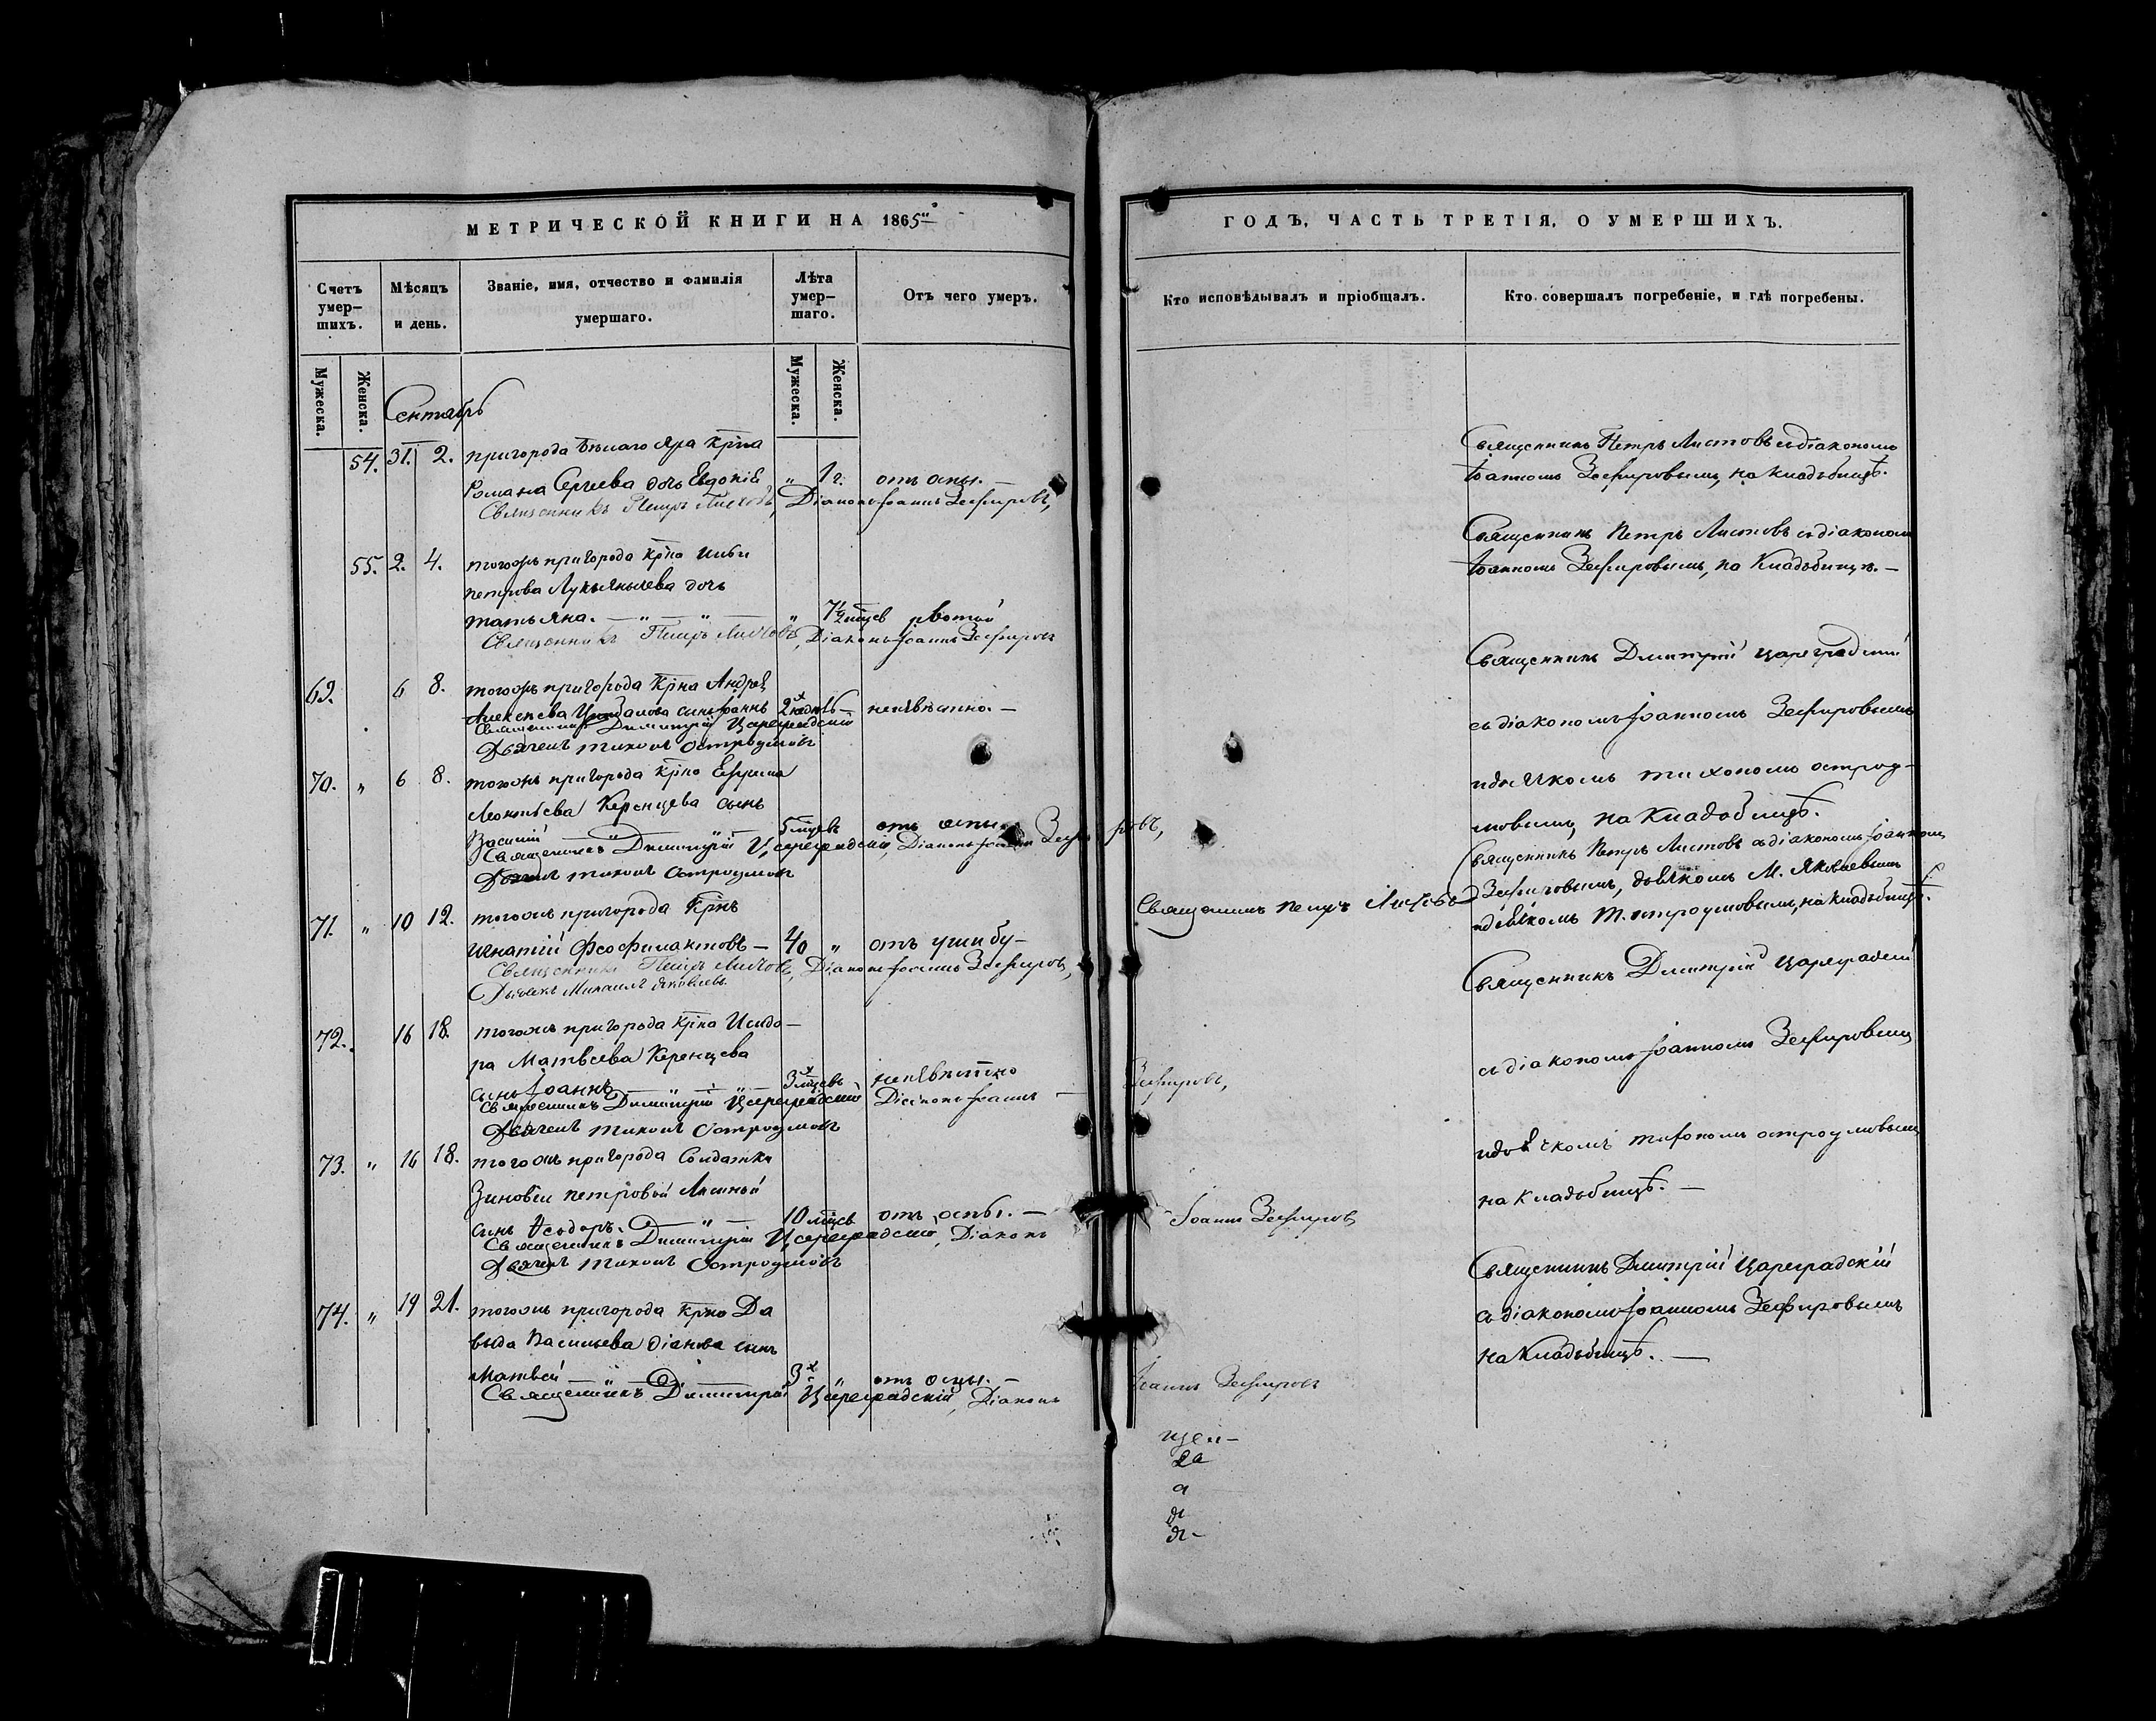 МЕТРИЧЕСКОЙ КНИГИ НА 1865й
Счетъ умер-шихъ.
Мѣсяцъ и день.
Званіе, имя, отчество и фамилія умершаго.
Лѣта умер-шаго.
Отъ чего умеръ.
Мужеска.
Женска.
Мужеска.
Женска.
Сентябрь
54. 31. 2. пригорода Бѣлаго Яра крѣна
Романа Сергѣева дочь Евдокія " 1 г. отъ оспы. —
Священникъ Петръ Листовъ, Діаконъ Іоаннъ Зефировъ,
55. 2. 4. тогожъ пригорода крѣна
Петрова Лукьянычева дочь
Татьяна. — " — " — " 7½ мцевъ рвотой
Священникъ Петръ Листовъ, Діаконъ Іоаннъ Зефировъ
69. 6 8. тогожъ пригорода крѣна Андрея
Алексѣева сынъ Іоаннъ неизвѣстно. —
Священникъ Димитрій Цареградскій
Дьячекъ Тихонъ Остроумовъ
70. " 6 8. тогожъ пригорода крѣна Ефрема
Леонтьева Керенцева сынъ
Василій 5 мцевъ отъ оспы
Священникъ Димитрій Цареградскій, Діаконъ Іоаннъ Зефировъ,
Дьячекъ Тихонъ Остроумовъ
71. " 10 12. тогожъ пригорода крѣнъ
Игнатій Феофилактовъ — 40 " отъ ушибу —
Священникъ Петръ Листовъ, Діаконъ Іоаннъ Зефировъ,
Дьячекъ Михаилъ Яковлевъ.
72. 16 18. тогожъ пригорода крѣна Исидо-
ра Матвѣева Керенцева
сынъ Іоаннъ — " — " — 3х мцевъ неизвѣстно
Священникъ Димитрій Цареградскій Діаконъ Іоаннъ — Зефировъ,
Дьячекъ Тихонъ Остроумовъ
73. " 16 18. тогожъ пригорода солдатки
Зиновіи Петровой
сынъ Ѳеодоръ. — " — 10 мцевъ отъ оспы. —
Священникъ Димитрій Цареградскій, Діаконъ Іоаннъ Зефировъ
Дьячекъ Тихонъ Остроумовъ
74. " 19 21. тогожъ пригорода крѣна Да
выда Васильева Діанова сынъ
Матвѣй — " — 3х " отъ оспы. —
Священникъ Димитрій Цареградскій, Діаконъ Іоаннъ Зефировъ
ГОДЪ, ЧАСТЬ ТРЕТІЯ, О УМЕРШИХЪ.
Кто исповѣдывалъ и пріобщалъ.
Кто совершалъ погребеніе, и гдѣ погребены.
Священникъ Петръ Листовъ съ діакономъ
Іоанномъ Зефировымъ, на кладбищѣ.
Священникъ Петръ Листовъ съ діакономъ
Іоанномъ Зефировымъ, на кладбищѣ. —
Священникъ Димитрій Цареградскій
съ діакономъ Іоанномъ Зефировымъ
и дьячкомъ Тихономъ Остроу-
мовымъ, на кладбищѣ.
Священникъ Петръ Листовъ
Священникъ Петръ Листовъ съ діакономъ Іоанномъ
Зефировымъ, дьячкомъ М. Яковлевымъ
и дьячкомъ Т. Остроумовымъ, на кладбищѣ.
Священникъ Дмитрій Цареградскій
съ діакономъ Іоанномъ Зефировымъ
и дьячкомъ Тихономъ Остроумовымъ
на кладбищѣ. —
Священникъ Дмитрій Цареградскій
съ діакономъ Іоанномъ Зефировымъ
на кладбищѣ. —